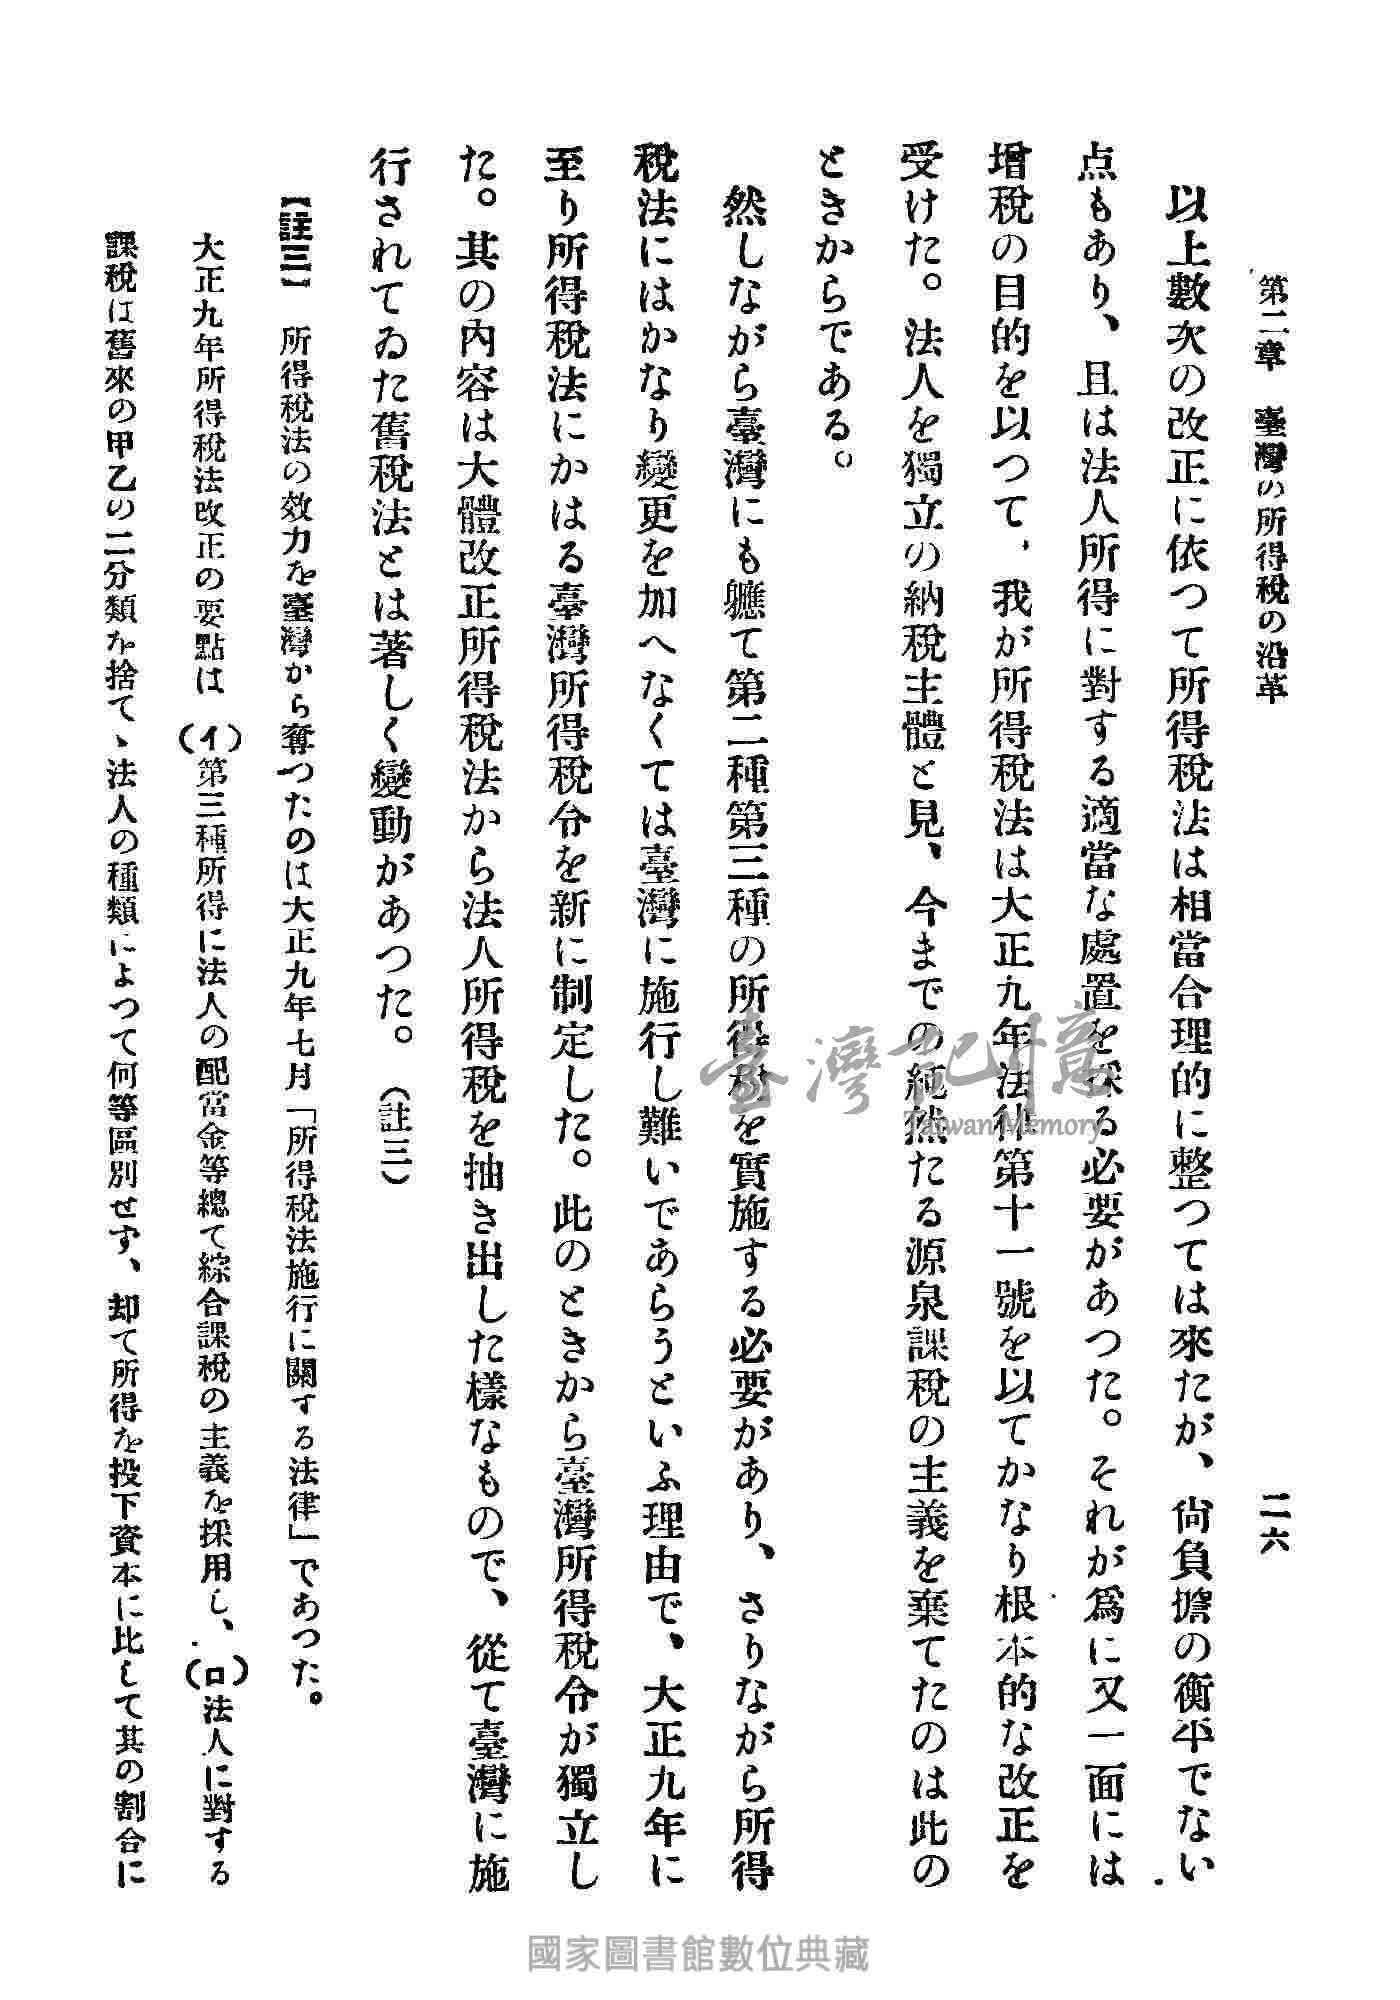 第二章　臺灣の所得稅の沿革
二六
以上數次の改正に依つて所得稅法は相當合理的に整つては來たが、尙負擔の衡平でない
点もあり、且は法人所得に對する適當な處置を採る必要があつた。それが爲に又一面には
增稅の目的を以つて、我が所得稅法は大正九年法律第十一號を以てかなり根本的な改正を
受けた。法人を獨立の納稅主體と見、今までの純然たる源泉課稅の主義を棄てたのは此の
ときからである。
然しながら臺灣にも軈て第二種第三種の所得稅を實施する必要があり、さりながら所得
稅法にはかなり變更を加へなくては臺灣に施行し難いであらうといふ理由で、大正九年に
至り所得稅法にかはる臺灣所得稅令を新に制定した。此のときから臺灣所得稅令が獨立し
た。其の內容は大體改正所得稅法から法人所得稅を抽き出した樣なもので、從て臺灣に施
行されてゐた舊稅法とは著しく變動があつた。（註三）
【註三】　所得稅法の效力を臺灣から奪つたのは大正九年七月「所得稅法施行に關する法律」であつた。
大正九年所得稅法改正の要點は（イ）第三種所得に法人の配當金等總て綜合課稅の主義を採用し、（ロ）法人に對する
課稅は舊來の甲乙の二分類を捨て、法人の種類によつて何等區別せず、却て所得を投下資本に比して其の割合に
臺灣記憶
Taiwan Memory
國家圖書館數位典藏